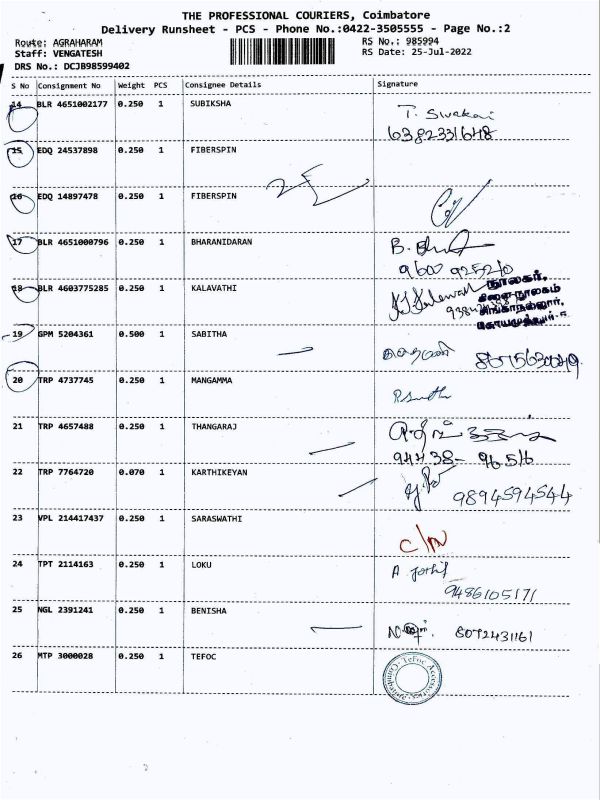 THE PROFESSIONAL COURIERS, Coimbatore
Delivery Runsheet - PCS - Phone No.:0422-3505555 - Page No.:2
Route: AGRAHARAM RS No.: 985994
Staff: VENGATESH RS Date: 25-Jul-2022
DRS No.: DCJB98599402
S No Consignment No Weight PCS Consignee Details Signature
14 BLR 4651002177 0.250 1 SUBIKSHA
6382331648
15 EDQ 24537898 0.250 1 FIBERSPIN
16 EDQ 14897478 0.250 1 FIBERSPIN
17 BLR 4651000796 0.250 1 BHARANIDARAN
9600 925210
18 BLR 4603775285 0.250 1 KALAVATHI
நூலகர்,
கிளை நூலகம்
சிங்காநல்லூர்,
19 GPM 5204361 0.500 1 SABITHA
20 TRP 4737745 0.250 1 MANGAMMA
21 TRP 4657488 0.250 1 THANGARAJ
94438- 96516
22 TRP 7764720 0.070 1 KARTHIKEYAN
9894594544
23 VPL 214417437 0.250 1 SARASWATHI
24 TPT 2114163 0.250 1 LOKU
9486105171
25 NGL 2391241 0.250 1 BENISHA
8072431161
26 MTP 3000028 0.250 1 TEFOC